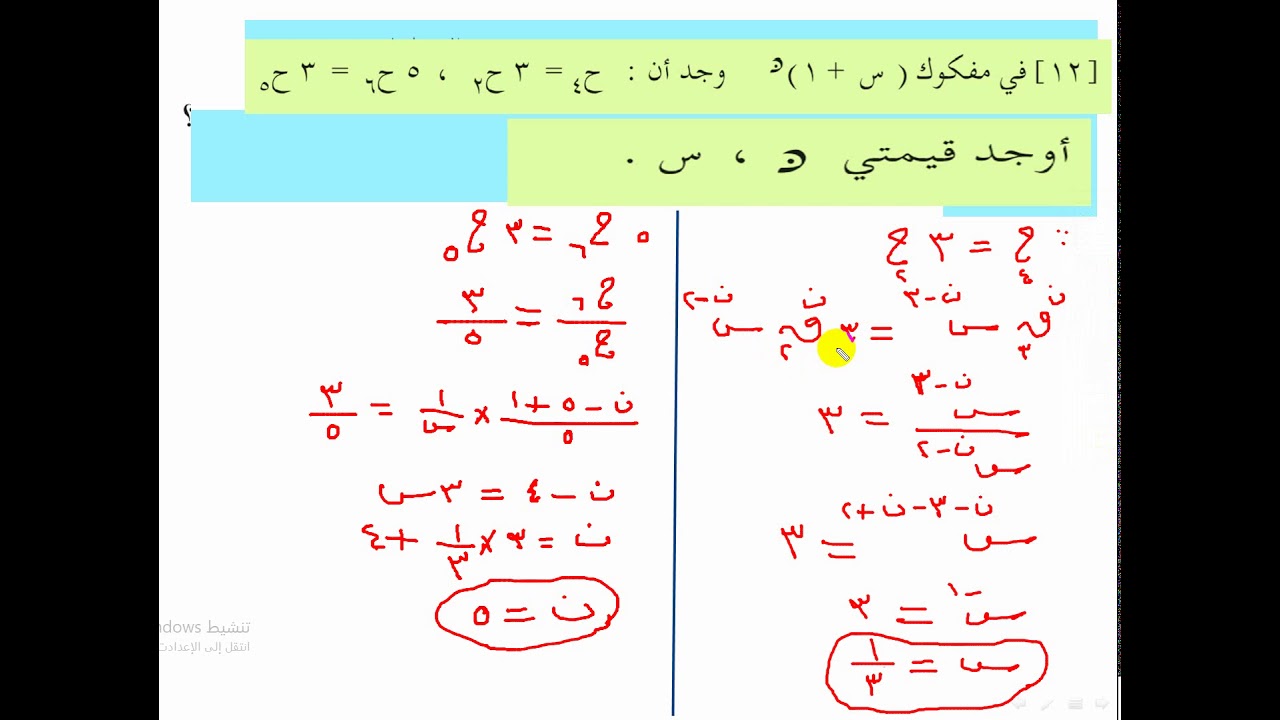 [١٢] في مفكوك ( س + ١)ن وجد أن : ح٤ = ٣ ح٢ ، ٥ ح٦ = ٣ ح٥
؟
أوجد قيمتي ن ، س .
∵ ح٤ = ٣ ح٢
ن ق٣ س^(ن-٣) = ٣ ن ق٢ س^(ن-٢)
س^(ن-٣) / س^(ن-٢) = ٣
س^(ن-٣-ن+٢) = ٣
س^(-١) = ٣
س = ١/٣
٥ ح٦ = ٣ ح٥
ح٦ / ح٥ = ٣/٥
(ن - ٥ + ١)/٥ × ١/س = ٣/٥
ن - ٤ = ٣س
ن = ٣ × ١/٣ + ٤
ن = ٥
تنشيط ndows
انتقل إلى الإعدادت